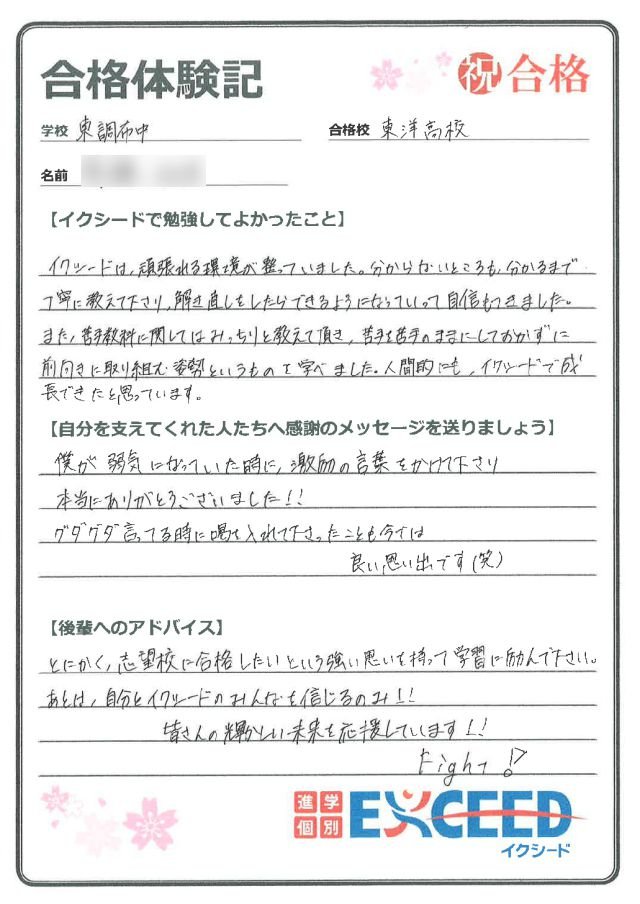 合格体験記
祝 合格
学校 東調布中
合格校 東洋高校
名前
【イクシードで勉強してよかったこと】
イクシードは、頑張れる環境が整っていました。分からないところも、分かるまで
丁寧に教えて下さり、解き直しをしたらできるようになっていって自信もつきました。
また、苦手教科に関してはみっちりと教えて頂き、苦手を苦手のままにしておかずに
前向きに取り組む姿勢というものを学べました。人間的にも、イクシードで成
長できたと思っています。
【自分を支えてくれた人たちへ感謝のメッセージを送りましょう】
僕が弱気になっていた時に、激励の言葉をかけて下さり
本当にありがとうございました!!
グダグダ言ってる時に喝を入れて下さったことも今では
良い思い出です(笑)
【後輩へのアドバイス】
とにかく、志望校に合格したいという強い思いを持って学習に励んで下さい。
あとは、自分とイクシードのみんなを信じるのみ!!
皆さんの輝かしい未来を応援しています!!
Fight!?
進学個別 EXCEED
イクシード